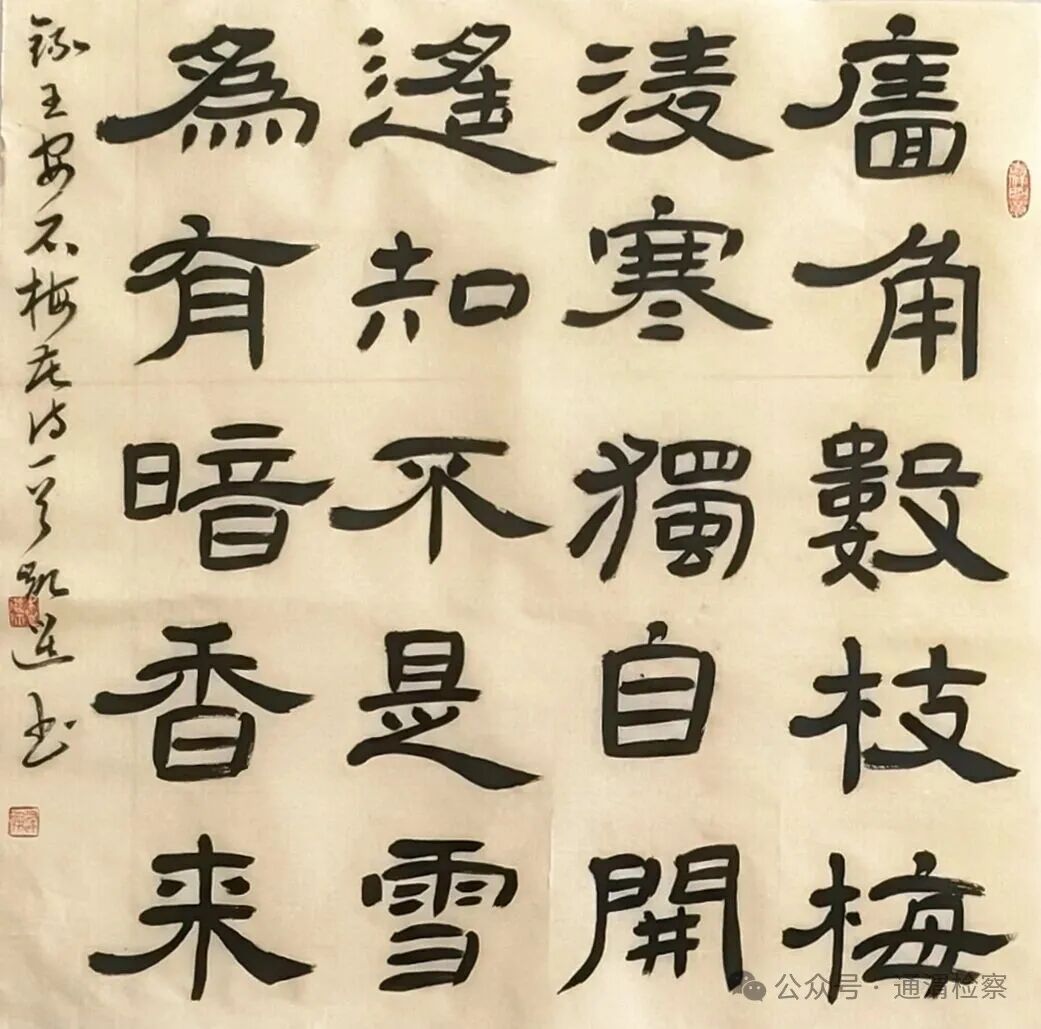 廧角數枝梅
淩寒獨自開
遙知不是雪
為有暗香来
録王安石梅花诗一首
书
公众号 · 通渭检察